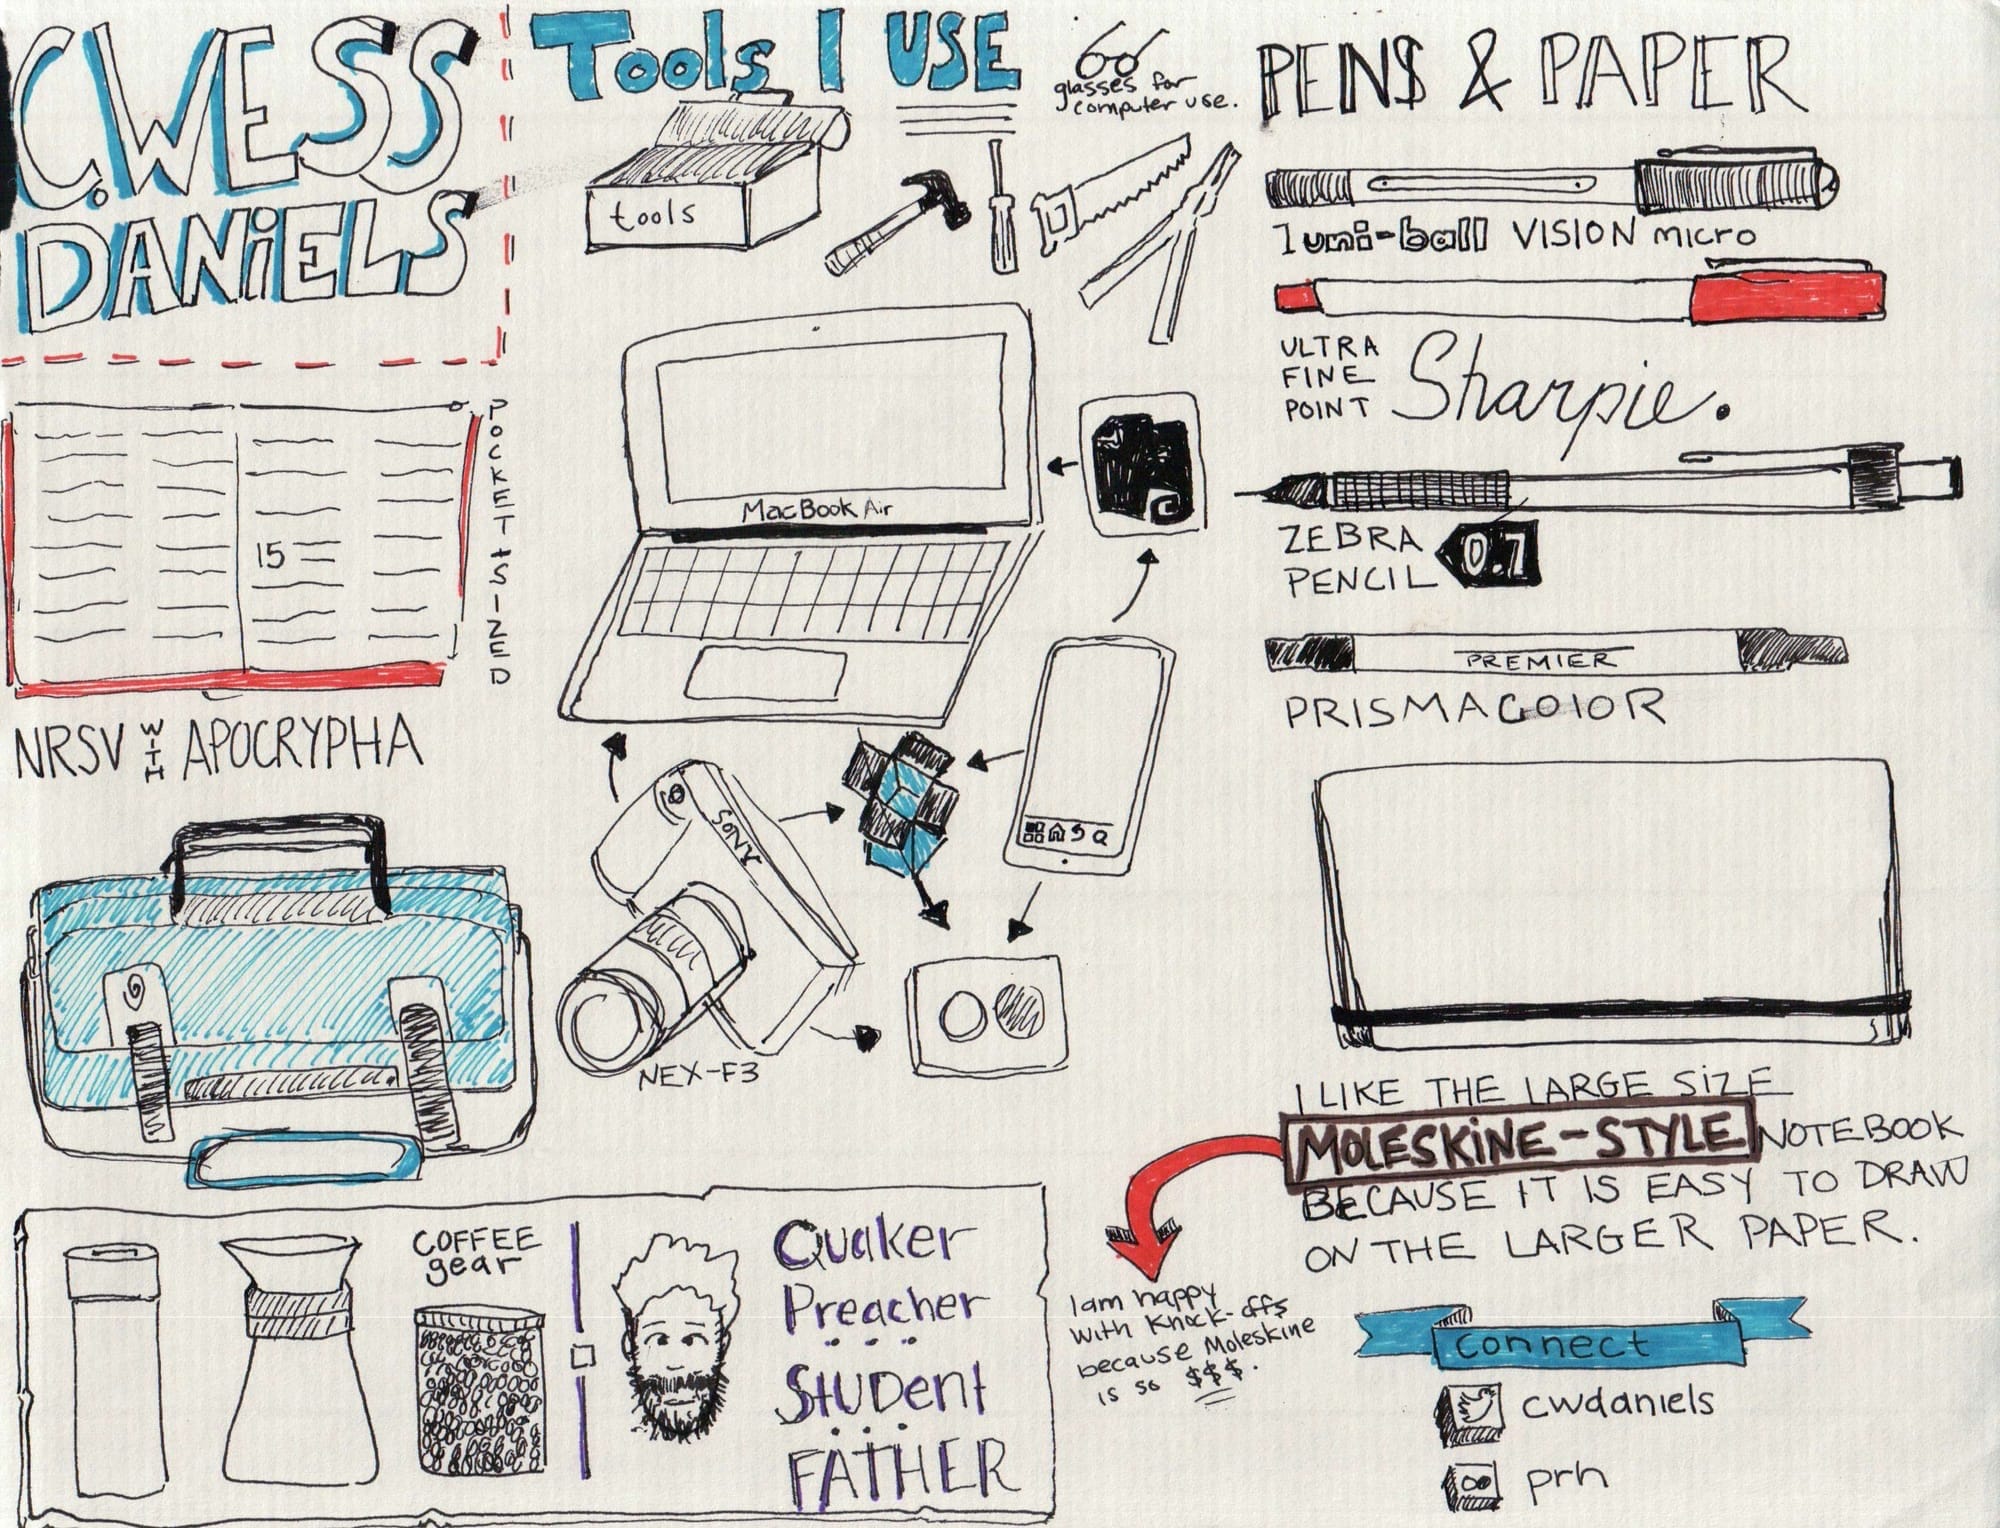 C.WESS
DANIELS
Tools I USE
glasses for
computer use.
tools
PENS & PAPER
uni-ball VISION micro
ULTRA
FINE
POINT
Sharpie.
ZEBRA
PENCIL
0.7
PREMIER
PRISMACOlOR
POCKET-SIZED
15
NRSV WITH APOCRYPHA
MacBook Air
SONY
NEX-F3
I LIKE THE LARGE SiZE
MOLESKiNE-STYLE NOTEBOOK
BECAUSE IT IS EASY TO DRAW
ON THE LARGER PAPER.
I am happy
with Knock-offs
because Moleskine
is so $$$.
COFFEE
gear
Quaker
Preacher
Student
FATHER
connect
cwdaniels
prh